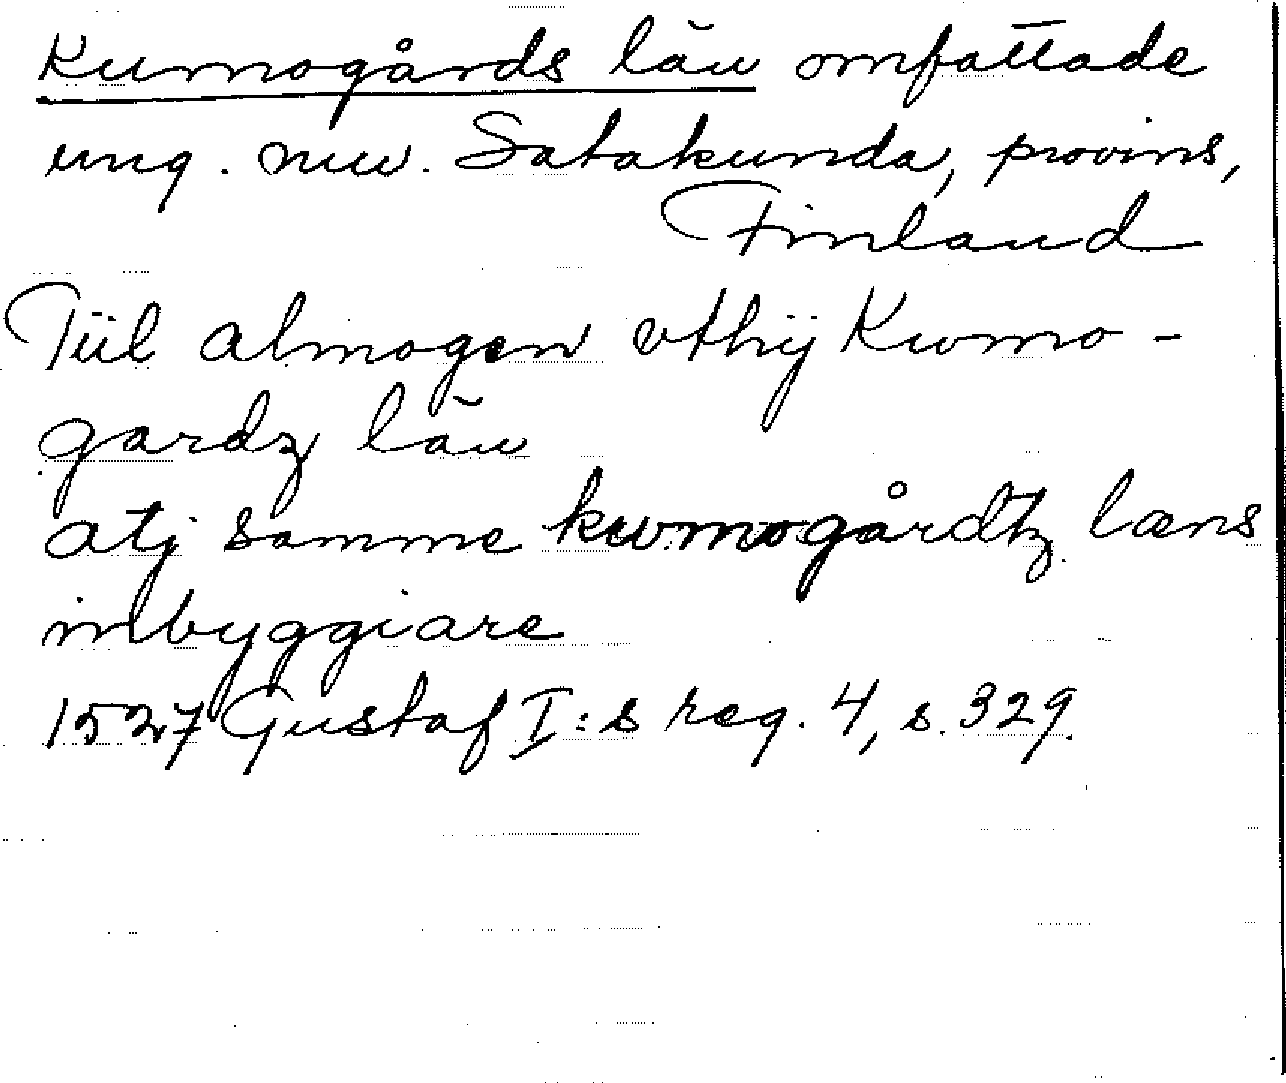 Kumogårds län omfattade
ung. nuv. Satakunda, provins,
Finland
Tiil almogen vthij Kwmo-
gardz län
atj samme kwmogårdtz læns
inbyggiare
1527 Gustaf I:s reg. 4, s. 329.